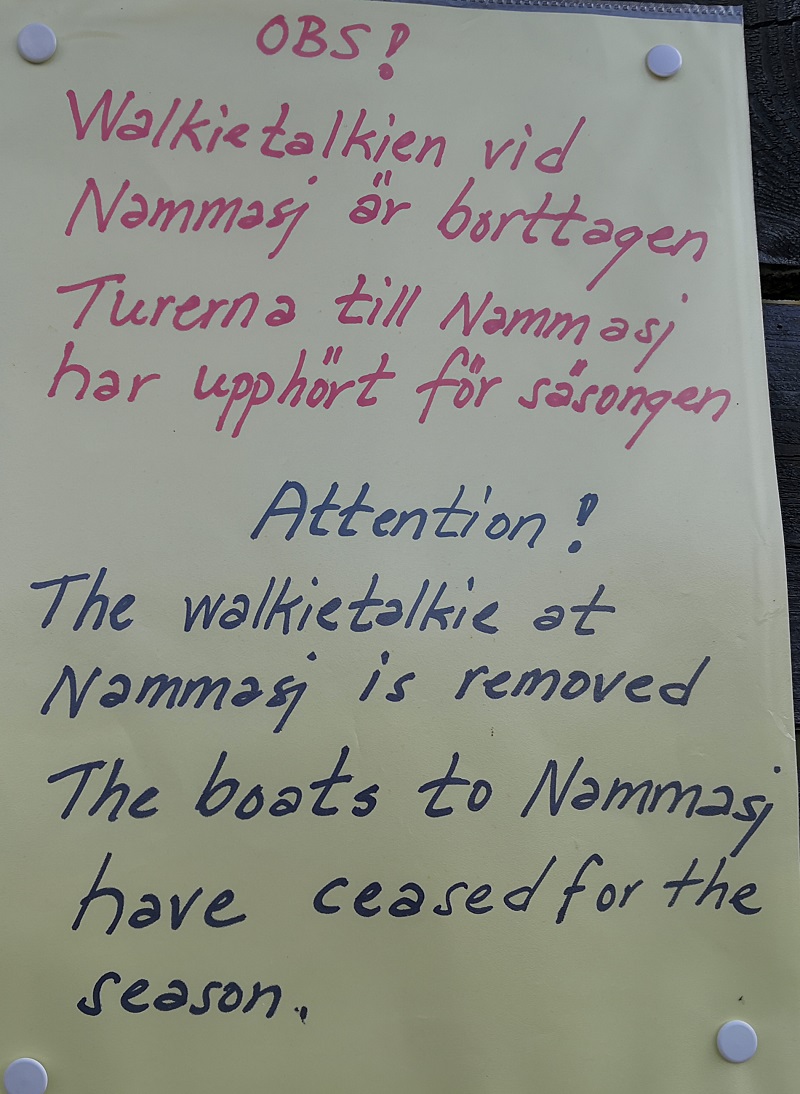 OBS!
Walkietalkien vid
Nammasj är borttagen
Turerna till Nammasj
har upphört för säsongen
Attention!
The walkietalkie at
Nammasj is removed
The boats to Nammasj
have ceased for the
season.